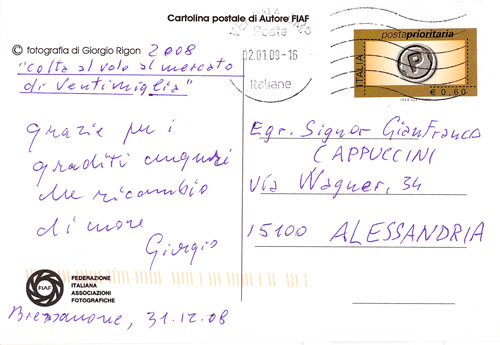 Cartolina postale di Autore FIAF
© fotografia di Giorgio Rigon 2008
"colta al volo al mercato
di Ventimiglia"
Grazie per i
graditi auguri
che ricambio
di cuore
Giorgio
FIAF
FEDERAZIONE
ITALIANA
ASSOCIAZIONI
FOTOGRAFICHE
Bressanone, 31.12.08
Poste
02.01.09-16
Italiane
postaprioritaria
ITALIA
P
€ 0,60
Egr. Signor GianFranco
CAPPUCCINI
Via Wagner, 34
15100 ALESSANDRIA